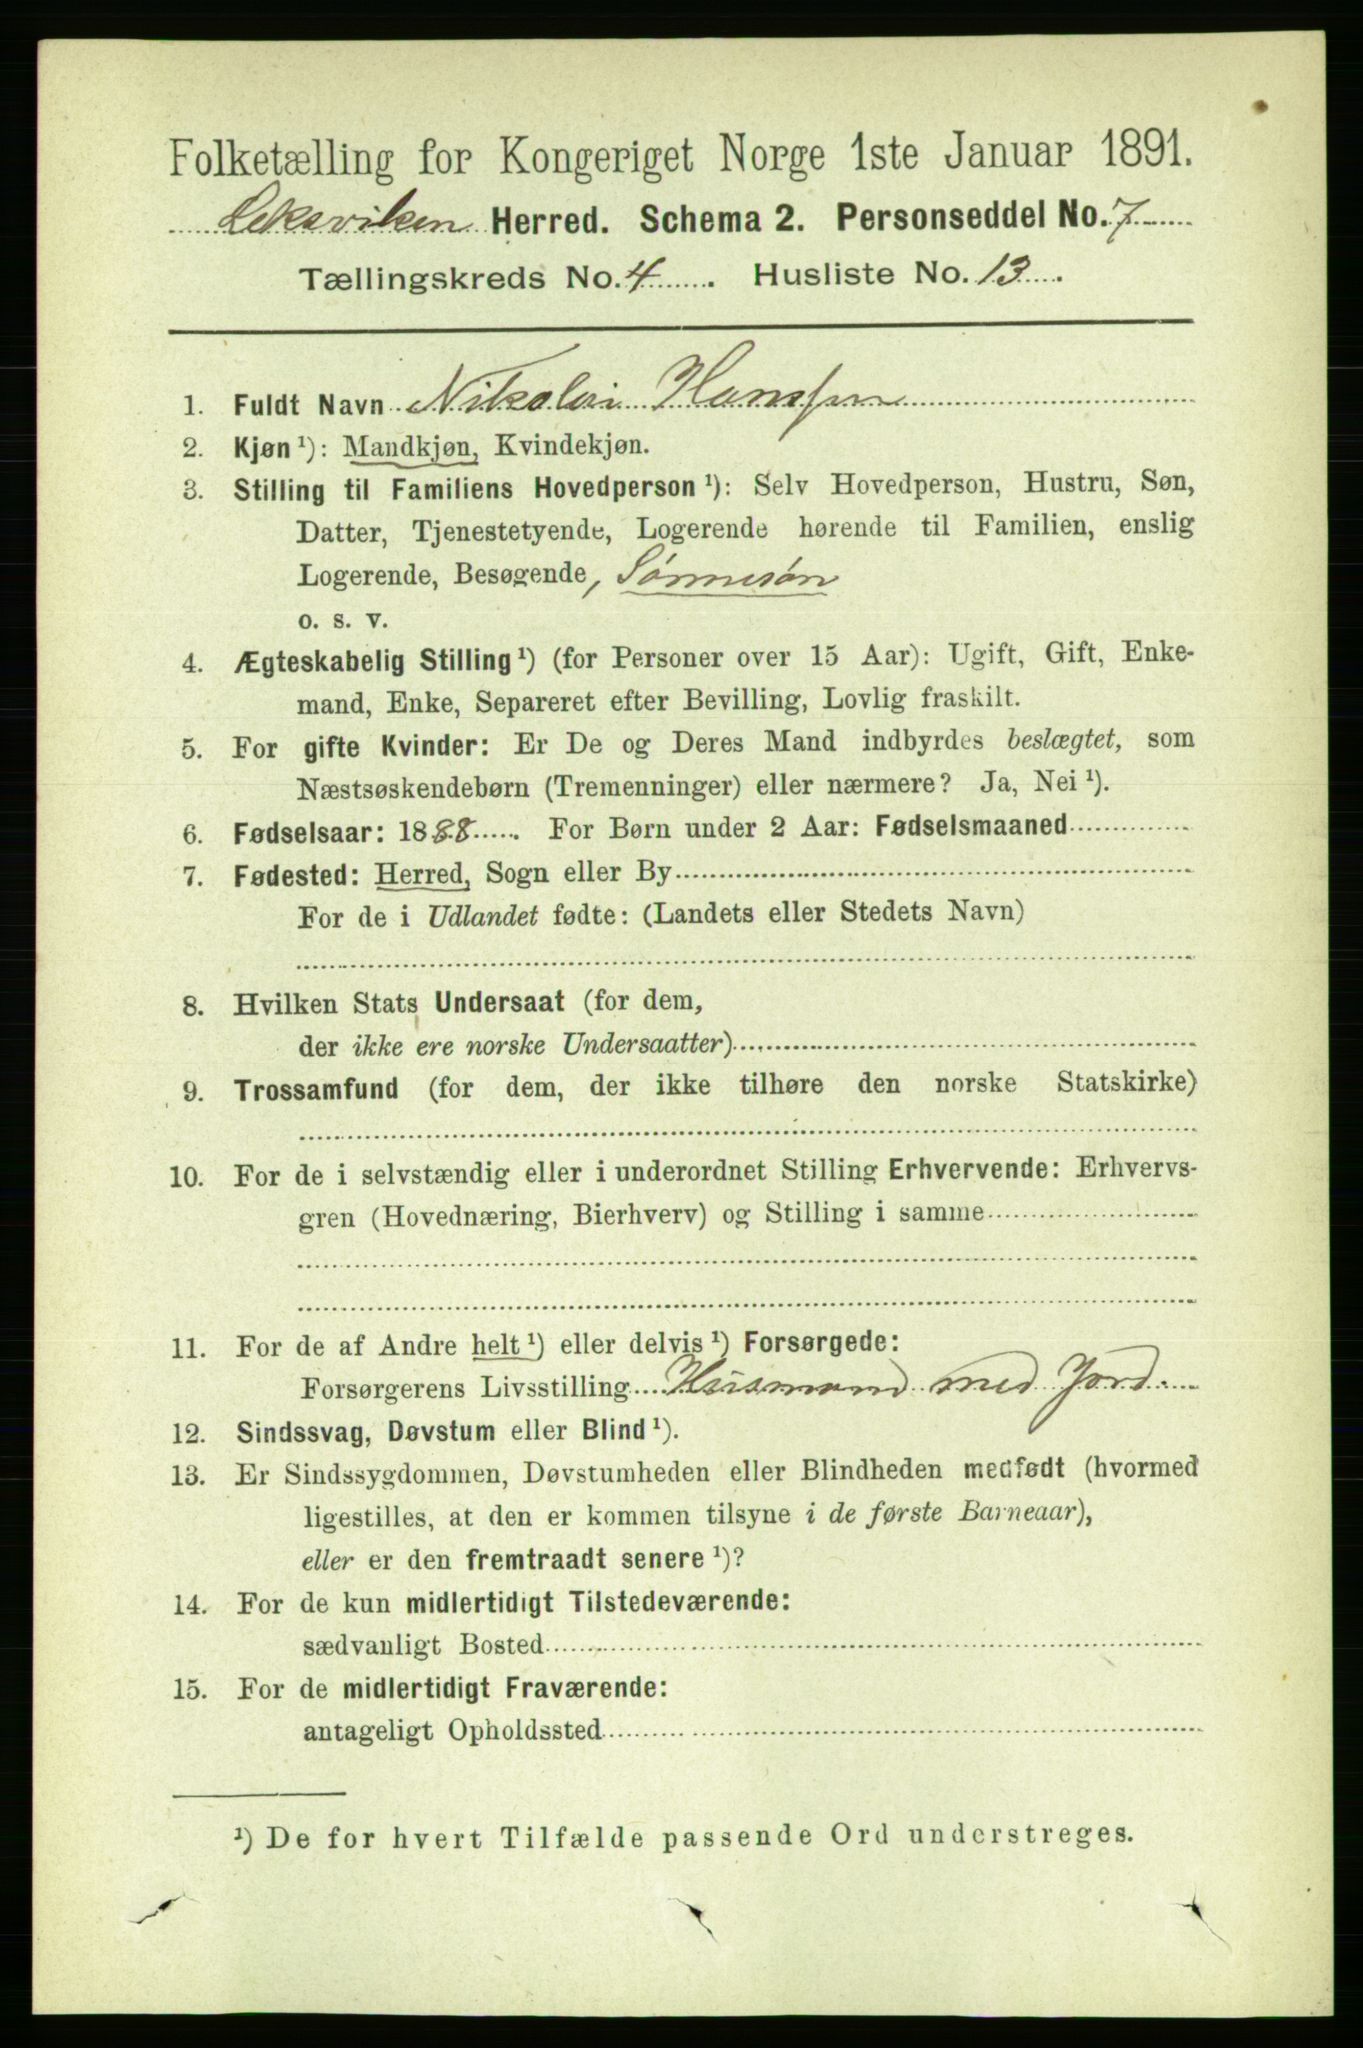 Folketælling for Kongeriget Norge 1ste Januar 1891.
Leksviken Herred. Schema 2. Personseddel No. 7
Tællingskreds No. 4. Husliste No. 13.
1. Fuldt Navn Nikolai Hanssen
2. Kjøn ¹): Mandkjøn, Kvindekjøn.
3. Stilling til Familiens Hovedperson ¹): Selv Hovedperson, Hustru, Søn,
Datter, Tjenestetyende, Logerende hørende til Familien, enslig
Logerende, Besøgende, Sønnesøn
o. s. v.
4. Ægteskabelig Stilling ¹) (for Personer over 15 Aar): Ugift, Gift, Enke-
mand, Enke, Separeret efter Bevilling, Lovlig fraskilt.
5. For gifte Kvinder: Er De og Deres Mand indbyrdes beslægtet, som
Næstsøskendebørn (Tremenninger) eller nærmere? Ja, Nei ¹).
6. Fødselsaar: 1888. For Børn under 2 Aar: Fødselsmaaned
7. Fødested: Herred, Sogn eller By
For de i Udlandet fødte: (Landets eller Stedets Navn)
8. Hvilken Stats Undersaat (for dem,
der ikke ere norske Undersaatter)
9. Trossamfund (for dem, der ikke tilhøre den norske Statskirke)
10. For de i selvstændig eller i underordnet Stilling Erhvervende: Erhvervs-
gren (Hovednæring, Bierhverv) og Stilling i samme
11. For de af Andre helt ¹) eller delvis ¹) Forsørgede:
Forsørgerens Livsstilling Husmand med Jord
12. Sindssvag, Døvstum eller Blind ¹).
13. Er Sindssygdommen, Døvstumheden eller Blindheden medfødt (hvormed
ligestilles, at den er kommen tilsyne i de første Barneaar),
eller er den fremtraadt senere ¹)?
14. For de kun midlertidigt Tilstedeværende:
sædvanligt Bosted
15. For de midlertidigt Fraværende:
antageligt Opholdssted
¹) De for hvert Tilfælde passende Ord understreges.